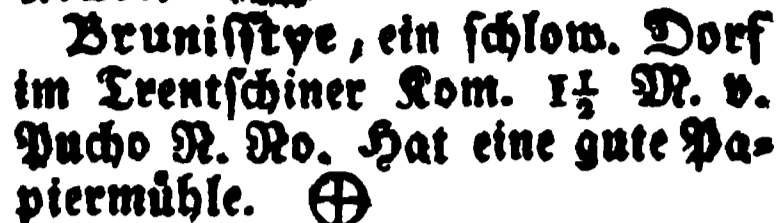 Brunisstye, ein schlow. Dorf
im Trentschiner Kom. 1½ M. v.
Pucho N. No. Hat eine gute Pa-
piermühle. ⊕